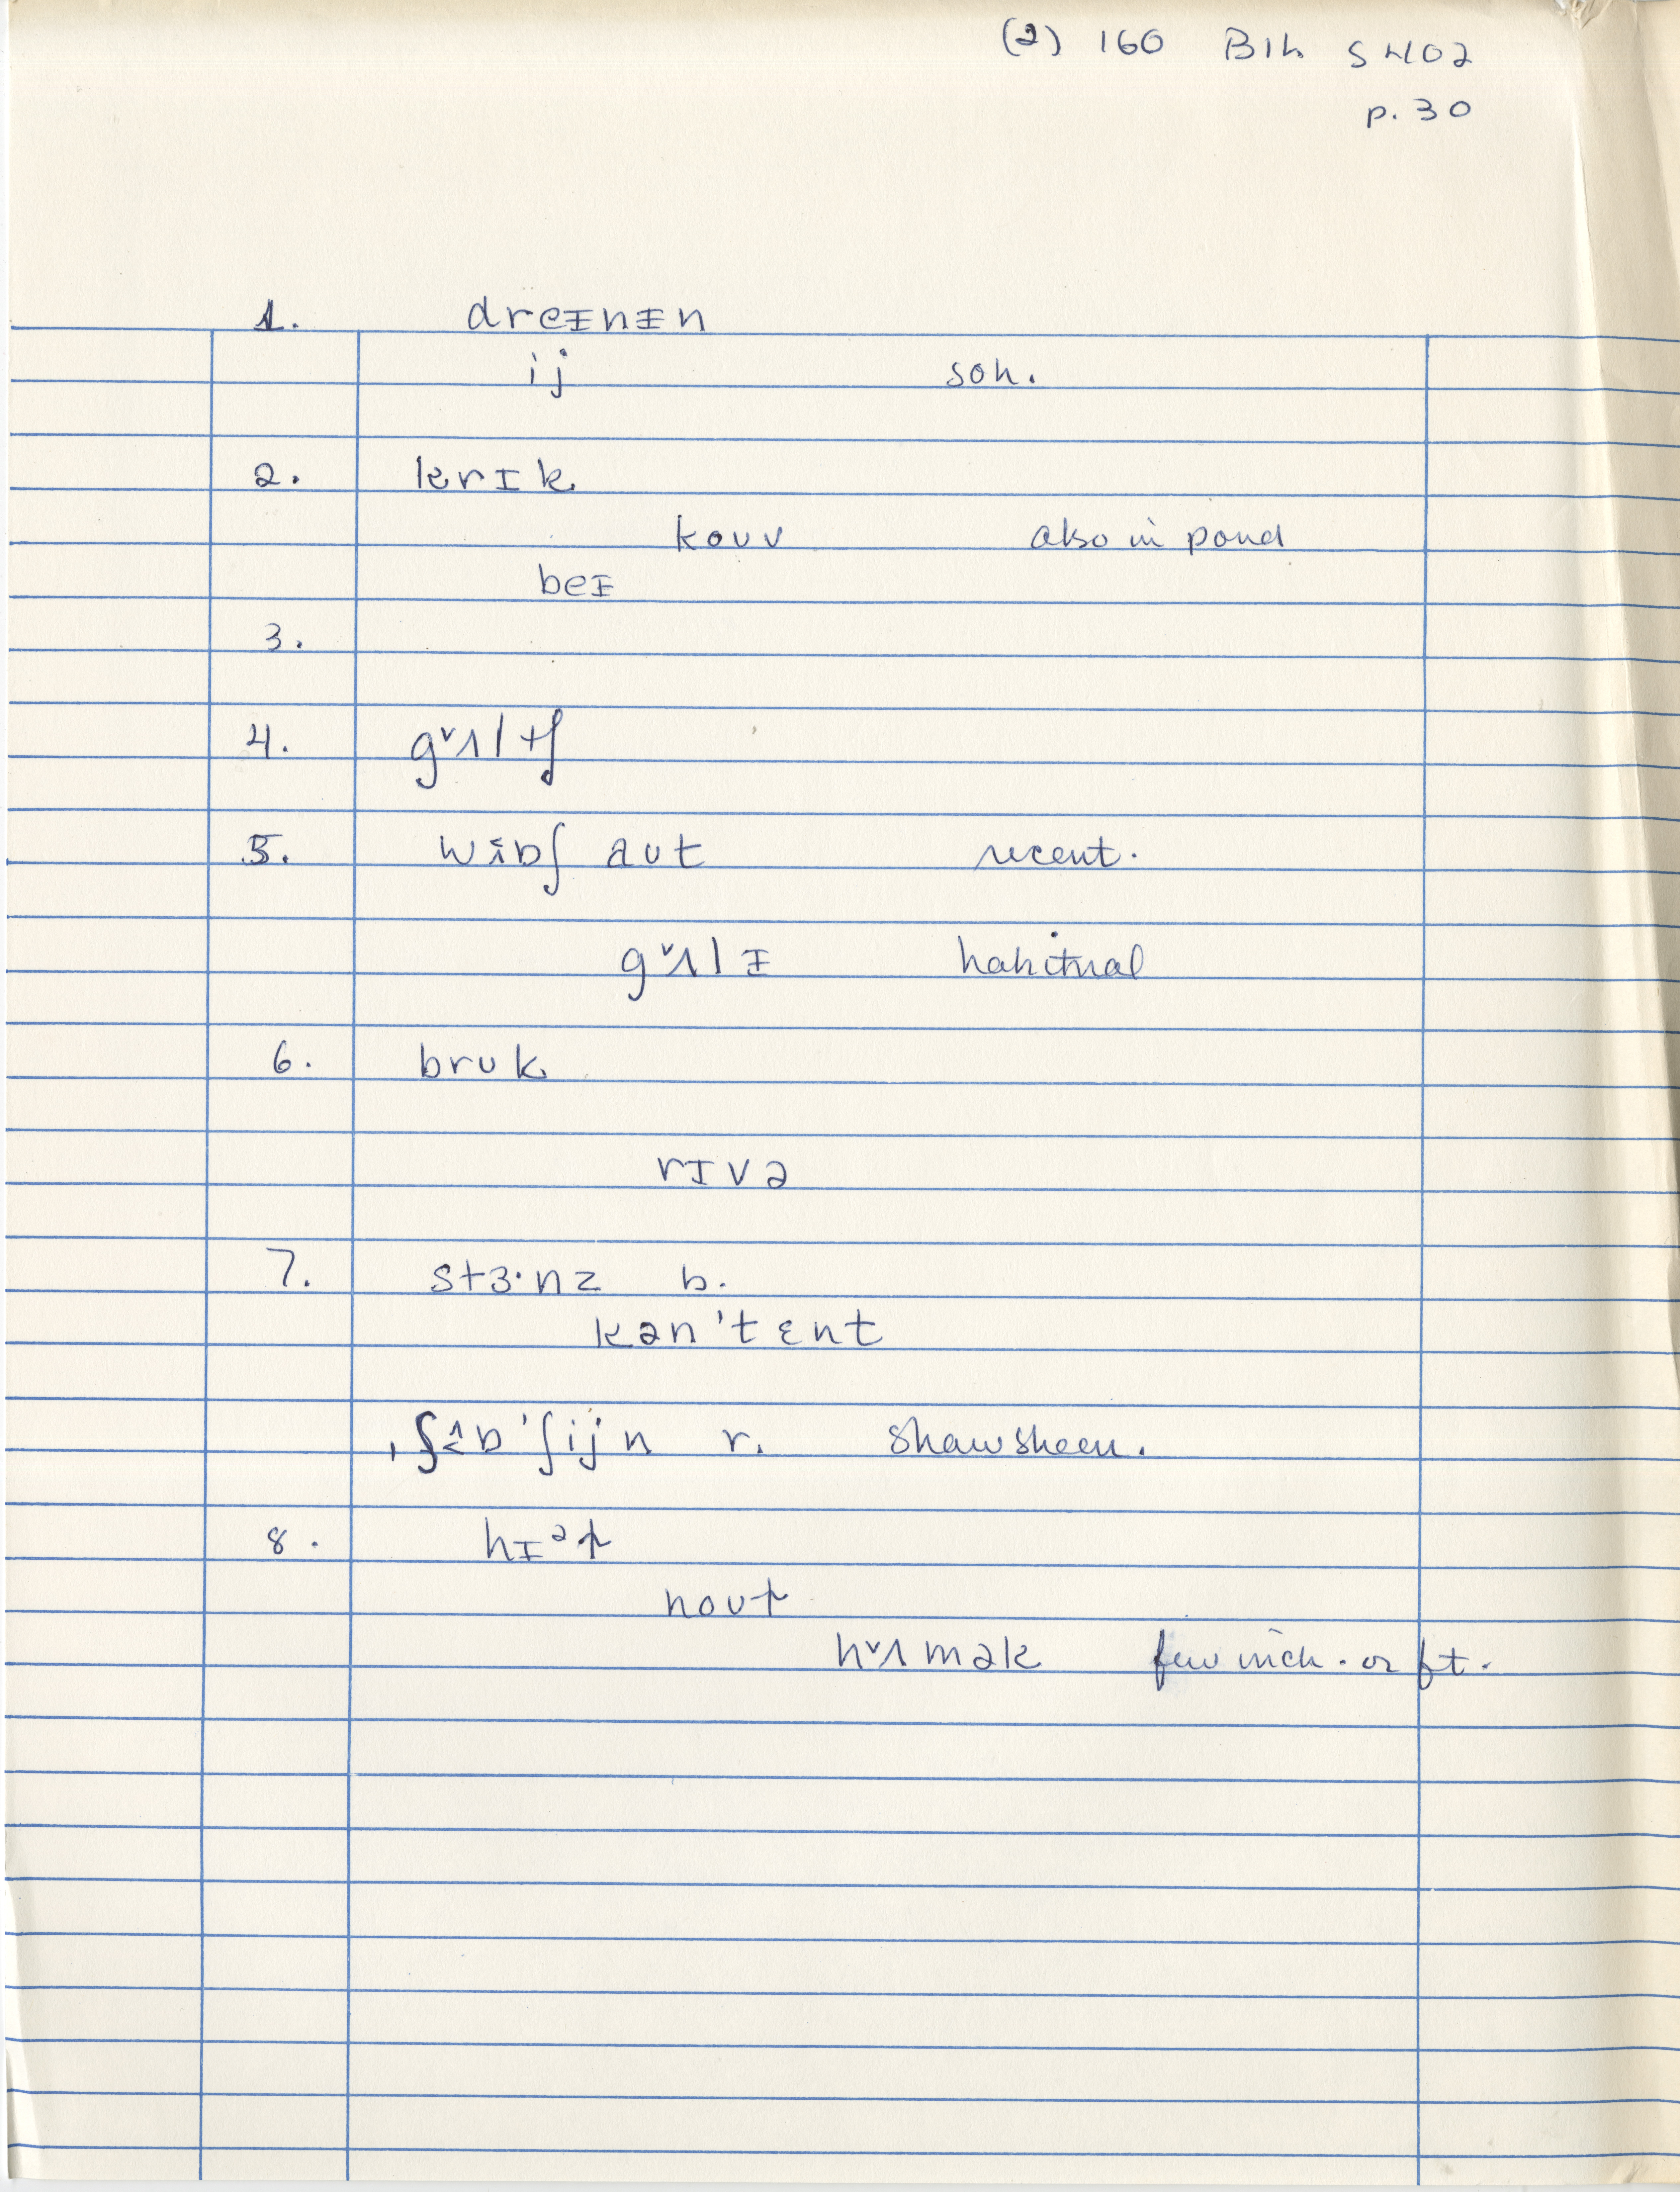 (2) 160 Bih S H02
p. 30
1. dreᵻnᵻn
ij son.
2. krɪk
kouv also in pond
beᵻ
3.
4. gˇʌltʃ
5. aut recent.
gˇʌlᵻ habitual
6. bruk
rɪvə
7. stɜ·nz b.
kən'tɛnt
'ʃijn r. Shawsheen.
8. hɪᵊp
noup
hˇʌmək few inch. or ft.